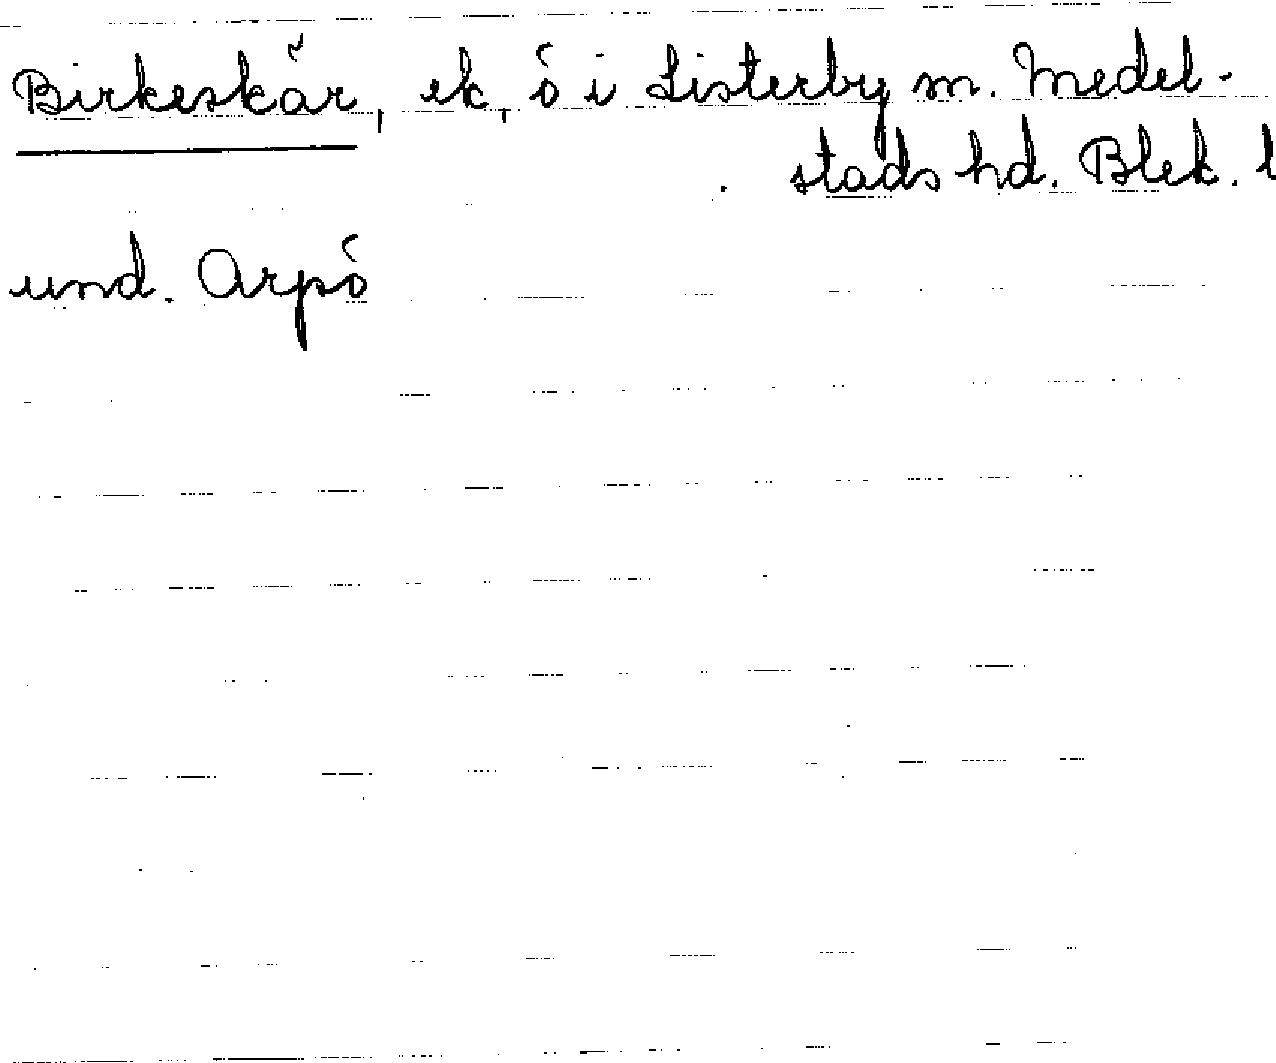 Birkeskär, ek, ö i Listerby sn. Medel-
stads hd. Blek. l
und. Arpö